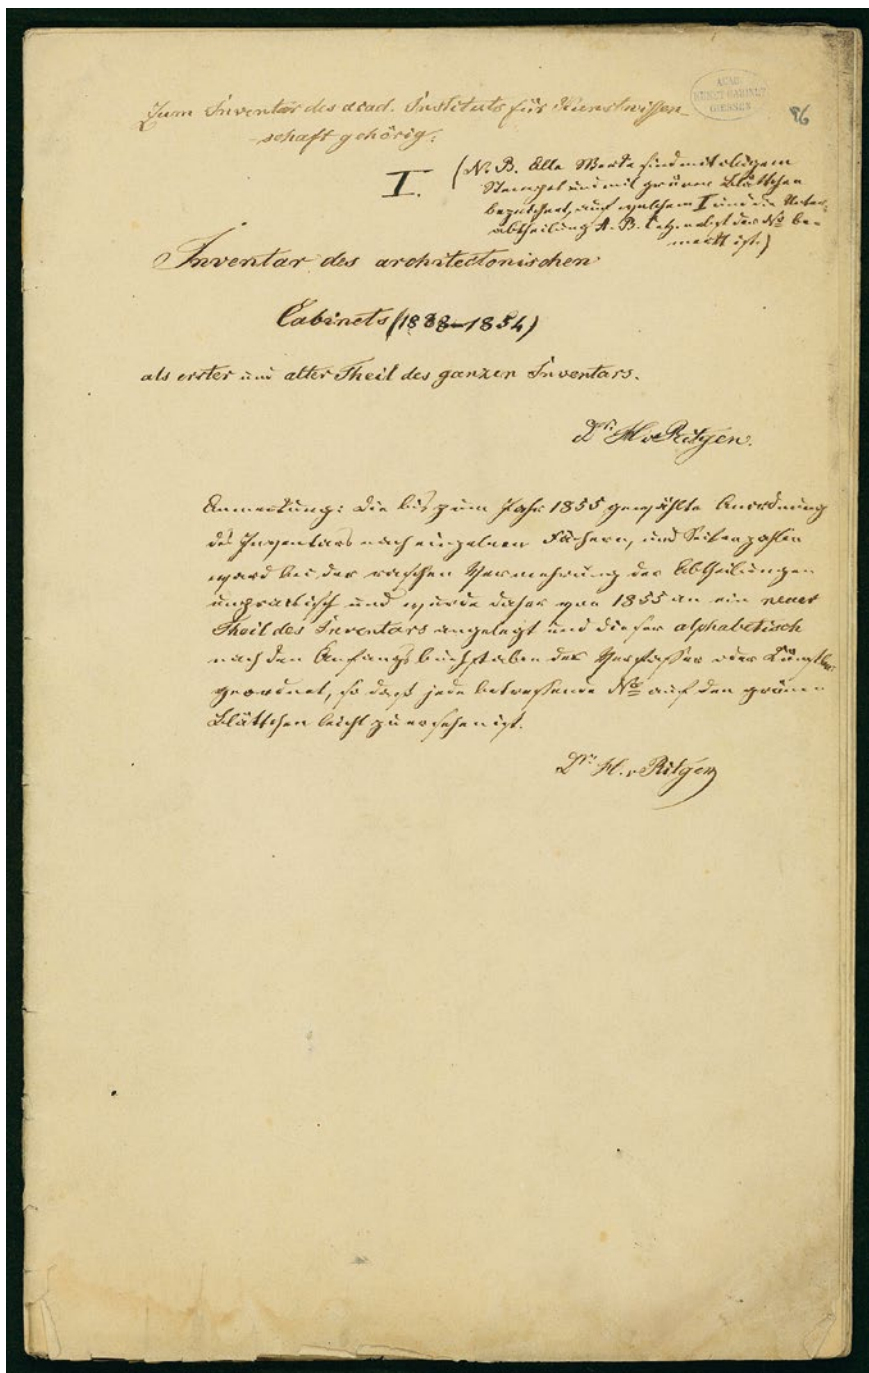 ACAD.
KUNST-CABINET
GIESSEN
86
Zum Inventar des acad. Instituts für Kunstwissen-
schaft gehörig.
I.
(N. B. Alle Werke sind mit obigem
Stempel und mit grünen Blättchen
bezeichnet, auf welchem I und die Unter-
abtheilung A. B. C. etc. nebst der No be-
merkt ist.)
Inventar des architectonischen
Cabinets (1838–1854)
als erster und alter Theil des ganzen Inventars.
Dr. H. v. Ritgen.
Anmerkung: Die bis zum Jahr 1855 gewählte Anordnung
des Inventars nach einzelnen Fächern, und Seitenzahlen
ward bei der raschen Vermehrung der Abtheilungen
unpraktisch und wurde daher von 1855 an ein neuer
Theil des Inventars angelegt und dieser alphabetisch
nach den Anfangsbuchstaben der Verfasser oder Künstler
geordnet, so daß jede betreffende No auf den grünen
Blättchen leicht zu ersehen ist.
Dr. H. v. Ritgen